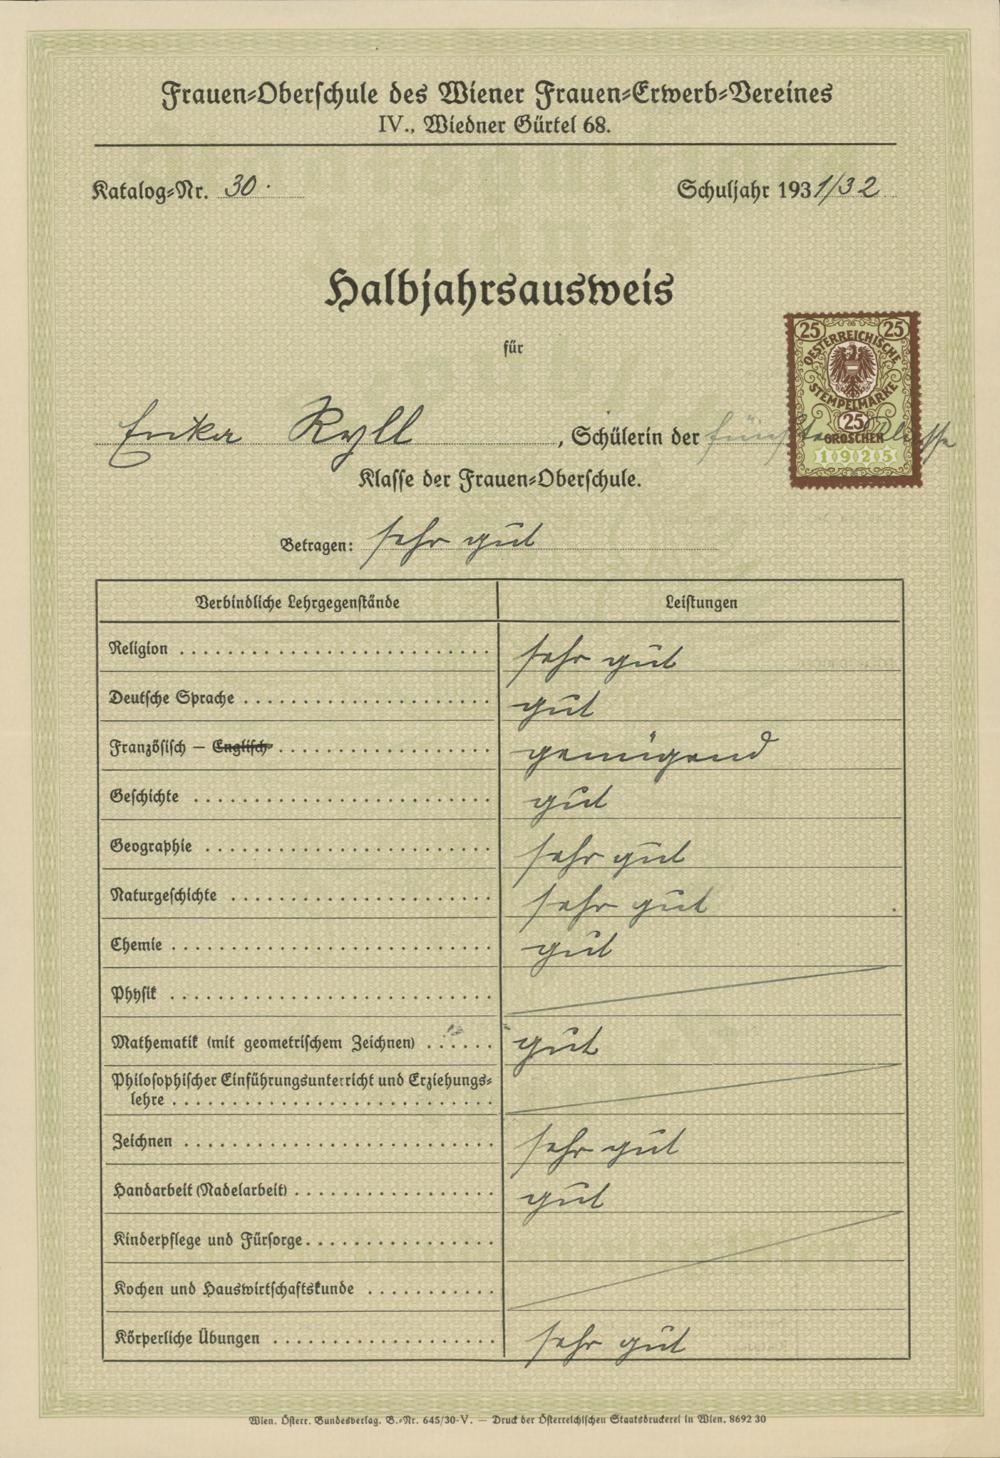 Frauen-Oberschule des Wiener Frauen-Erwerb-Vereines
IV., Wiedner Gürtel 68.
Katalog-Nr. 30. Schuljahr 1931/32
Halbjahrsausweis
für
25 25
OESTERREICHISCHE
STEMPELMARKE
25
GROSCHEN
1925
Erika Ryll, Schülerin der fünften Klasse
Klasse der Frauen-Oberschule.
Betragen: sehr gut
Verbindliche Lehrgegenstände Leistungen
Religion sehr gut
Deutsche Sprache gut
Französisch — Englisch genügend
Geschichte gut
Geographie sehr gut
Naturgeschichte sehr gut
Chemie gut
Physik
Mathematik (mit geometrischem Zeichnen) gut
Philosophischer Einführungsunterricht und Erziehungs-
lehre
Zeichnen sehr gut
Handarbeit (Nadelarbeit) gut
Kinderpflege und Fürsorge
Kochen und Hauswirtschaftskunde
Körperliche Übungen sehr gut
Wien. Österr. Bundesverlag. B.-Nr. 645/30-V. — Druck der Österreichischen Staatsdruckerei in Wien. 8692 30